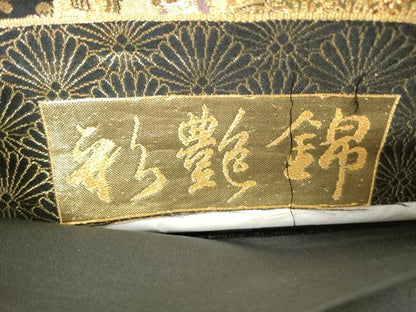 彩艶錦